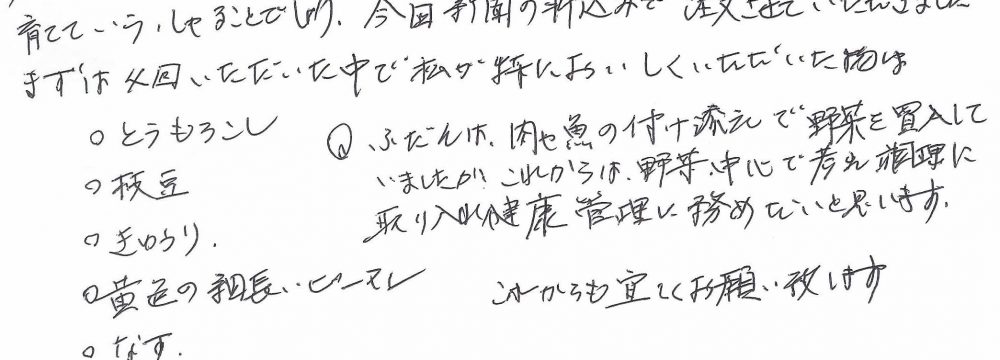 育てていらっしゃることでしょう。今回新聞の折込みで注文させていただきました
まずは今回いただいた中で私が特においしくいただいた物は
○とうもろこし
○枝豆
○きゅうり.
○黄色の細長いピーマン
○なす.
Q ふだんは、肉や魚の付け添えで野菜を買入して
いましたが、これからは、野菜中心で考え調理に
取り入れ健康管理に務めたいと思います.
これからも宜しくお願い致します